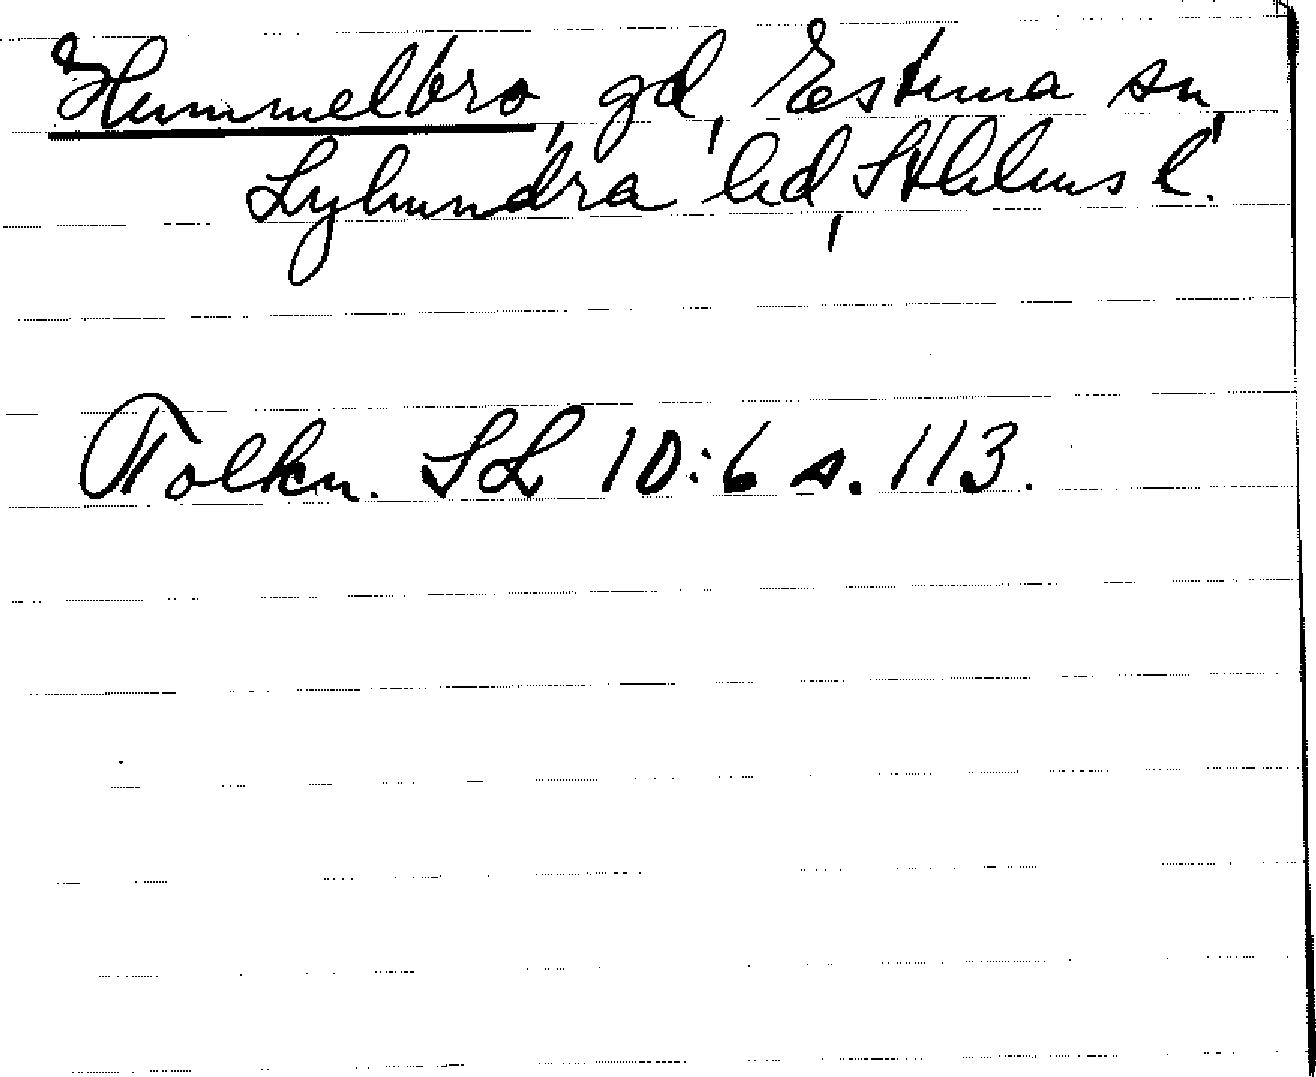 Hummelbro, gd, Estuna sn,
Lyhundra hd, Sthlms l.
Tolkn. SL 10:6 s. 113.